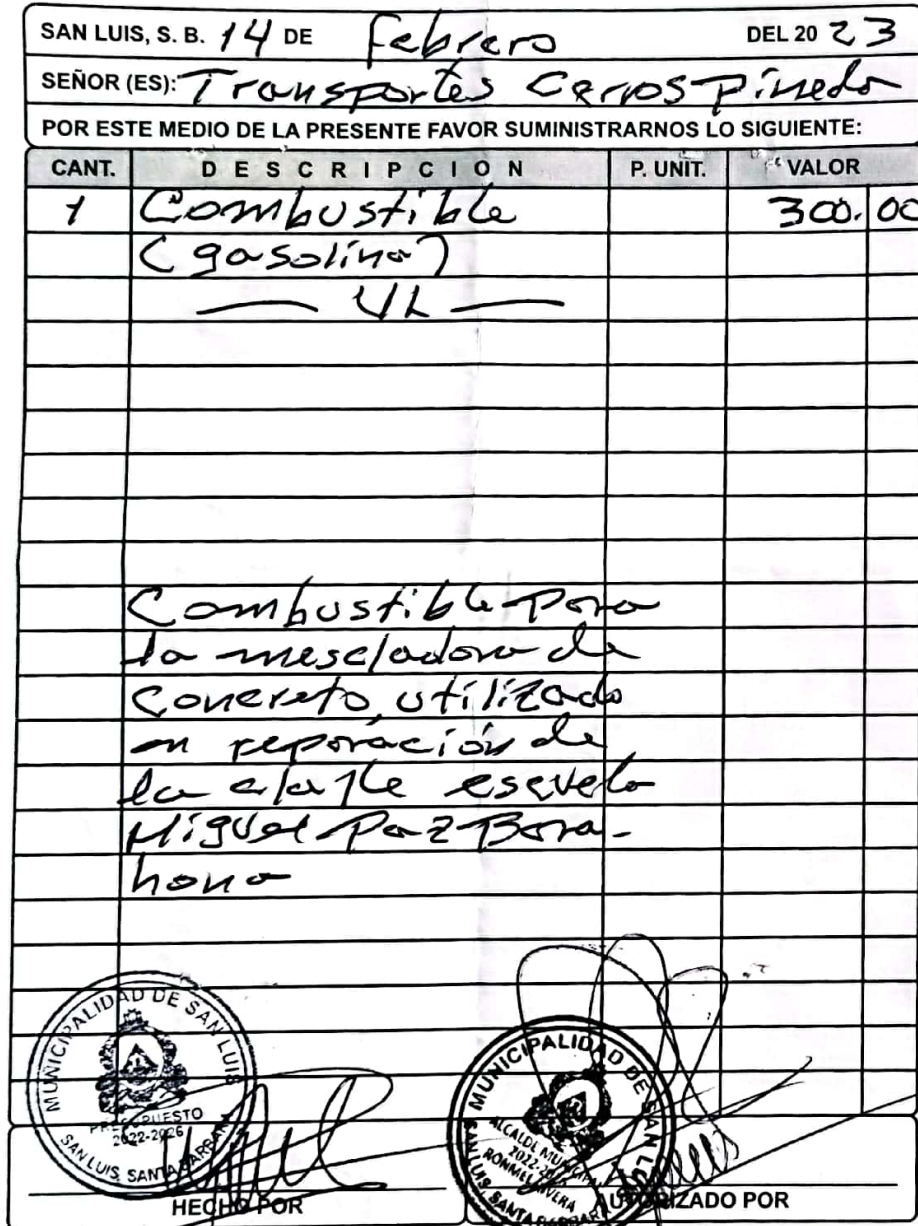 SAN LUIS, S. B. 14 DE Febrero DEL 20 23
SEÑOR (ES): Transportes Cerros Pineda
POR ESTE MEDIO DE LA PRESENTE FAVOR SUMINISTRARNOS LO SIGUIENTE:
CANT. DESCRIPCION P. UNIT. VALOR
1 Combustible 300.00
(gasolina)
— UL —
Combustible Para
la mescladora de
Concreto, utilizado
en reparación de
la calle escuela
Miguel Paz Bara-
hona
MUNICIPALIDAD DE SAN LUIS
PRESUPUESTO
2022-2026
SAN LUIS, SANTA BARBARA
MUNICIPALIDAD DE SAN LUIS
ALCALDE MUNICIPAL
ROMMEL RIVERA
SAN LUIS, SANTA BARBARA
HECHO POR
AUTORIZADO POR